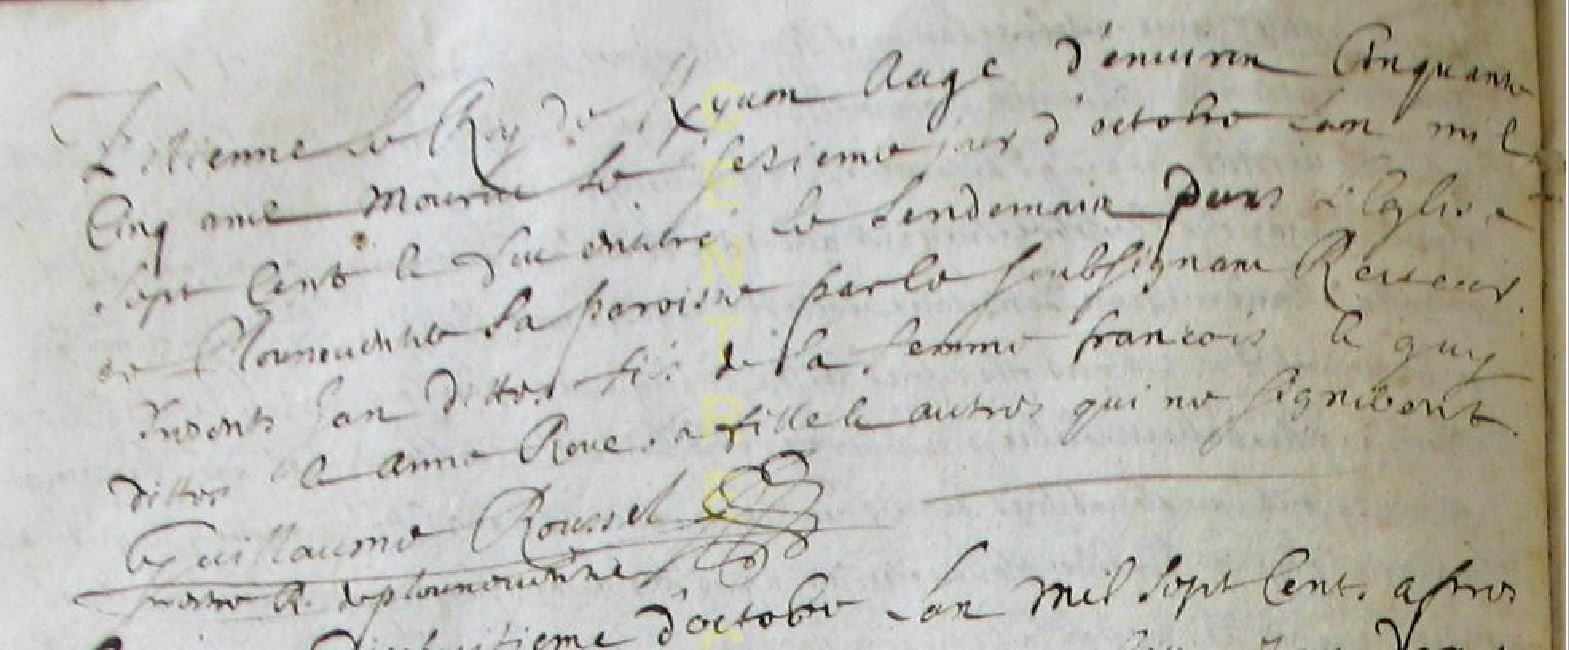 Estienne le Roy de Kyuon aage d'enuiron Cinquante
Cinq ans mourut le sesieme jour d'octobre lan mil
sept Cent & fut enterré le lendemain dans L'Eglise
de Plouneuentre sa paroisse par le soubsignant Recteur
presents Jan dittes fils de la femme francois le guy
dittes & anne Roue sa fille & autres qui ne signerent.
Guillaume Roussel
prestre R. de plouneuentre
dixhuitieme d'octobre lan mil sept Cent apres
CENTRE